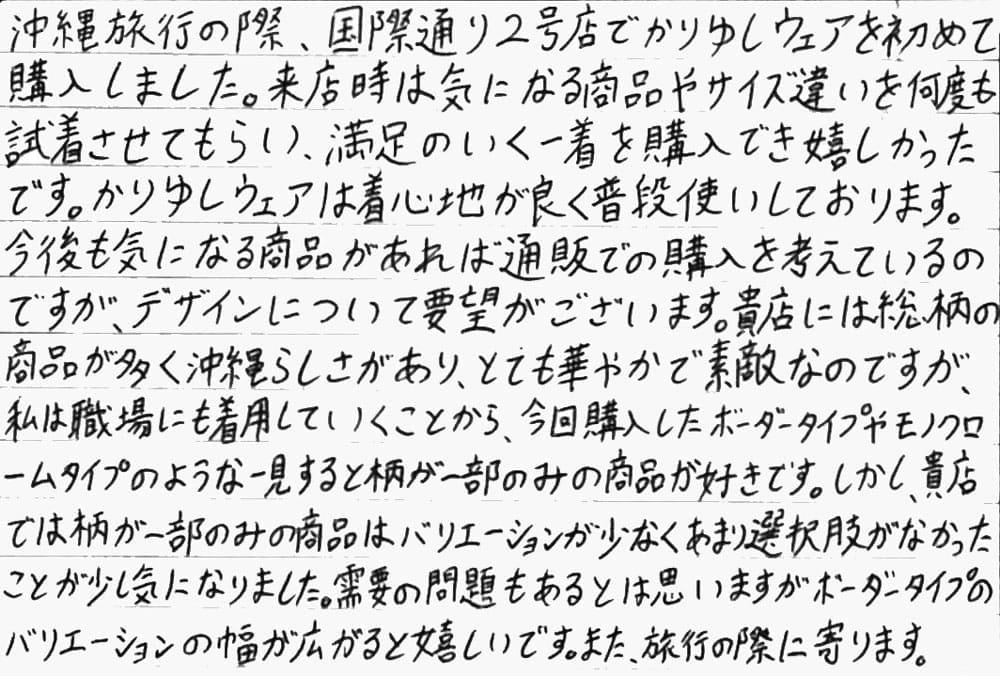 沖縄旅行の際、国際通り2号店でかりゆしウェアを初めて
購入しました。来店時は気になる商品やサイズ違いを何度も
試着させてもらい、満足のいく一着を購入でき嬉しかった
です。かりゆしウェアは着心地が良く普段使いしております。
今後も気になる商品があれば通販での購入を考えているの
ですが、デザインについて要望がございます。貴店には総柄の
商品が多く沖縄らしさがあり、とても華やかで素敵なのですが、
私は職場にも着用していくことから、今回購入したボーダータイプやモノクロ
ームタイプのような一見すると柄が一部のみの商品が好きです。しかし、貴店
では柄が一部のみの商品はバリエーションが少なくあまり選択肢がなかった
ことが少し気になりました。需要の問題もあるとは思いますがボーダータイプの
バリエーションの幅が広がると嬉しいです。また、旅行の際に寄ります。